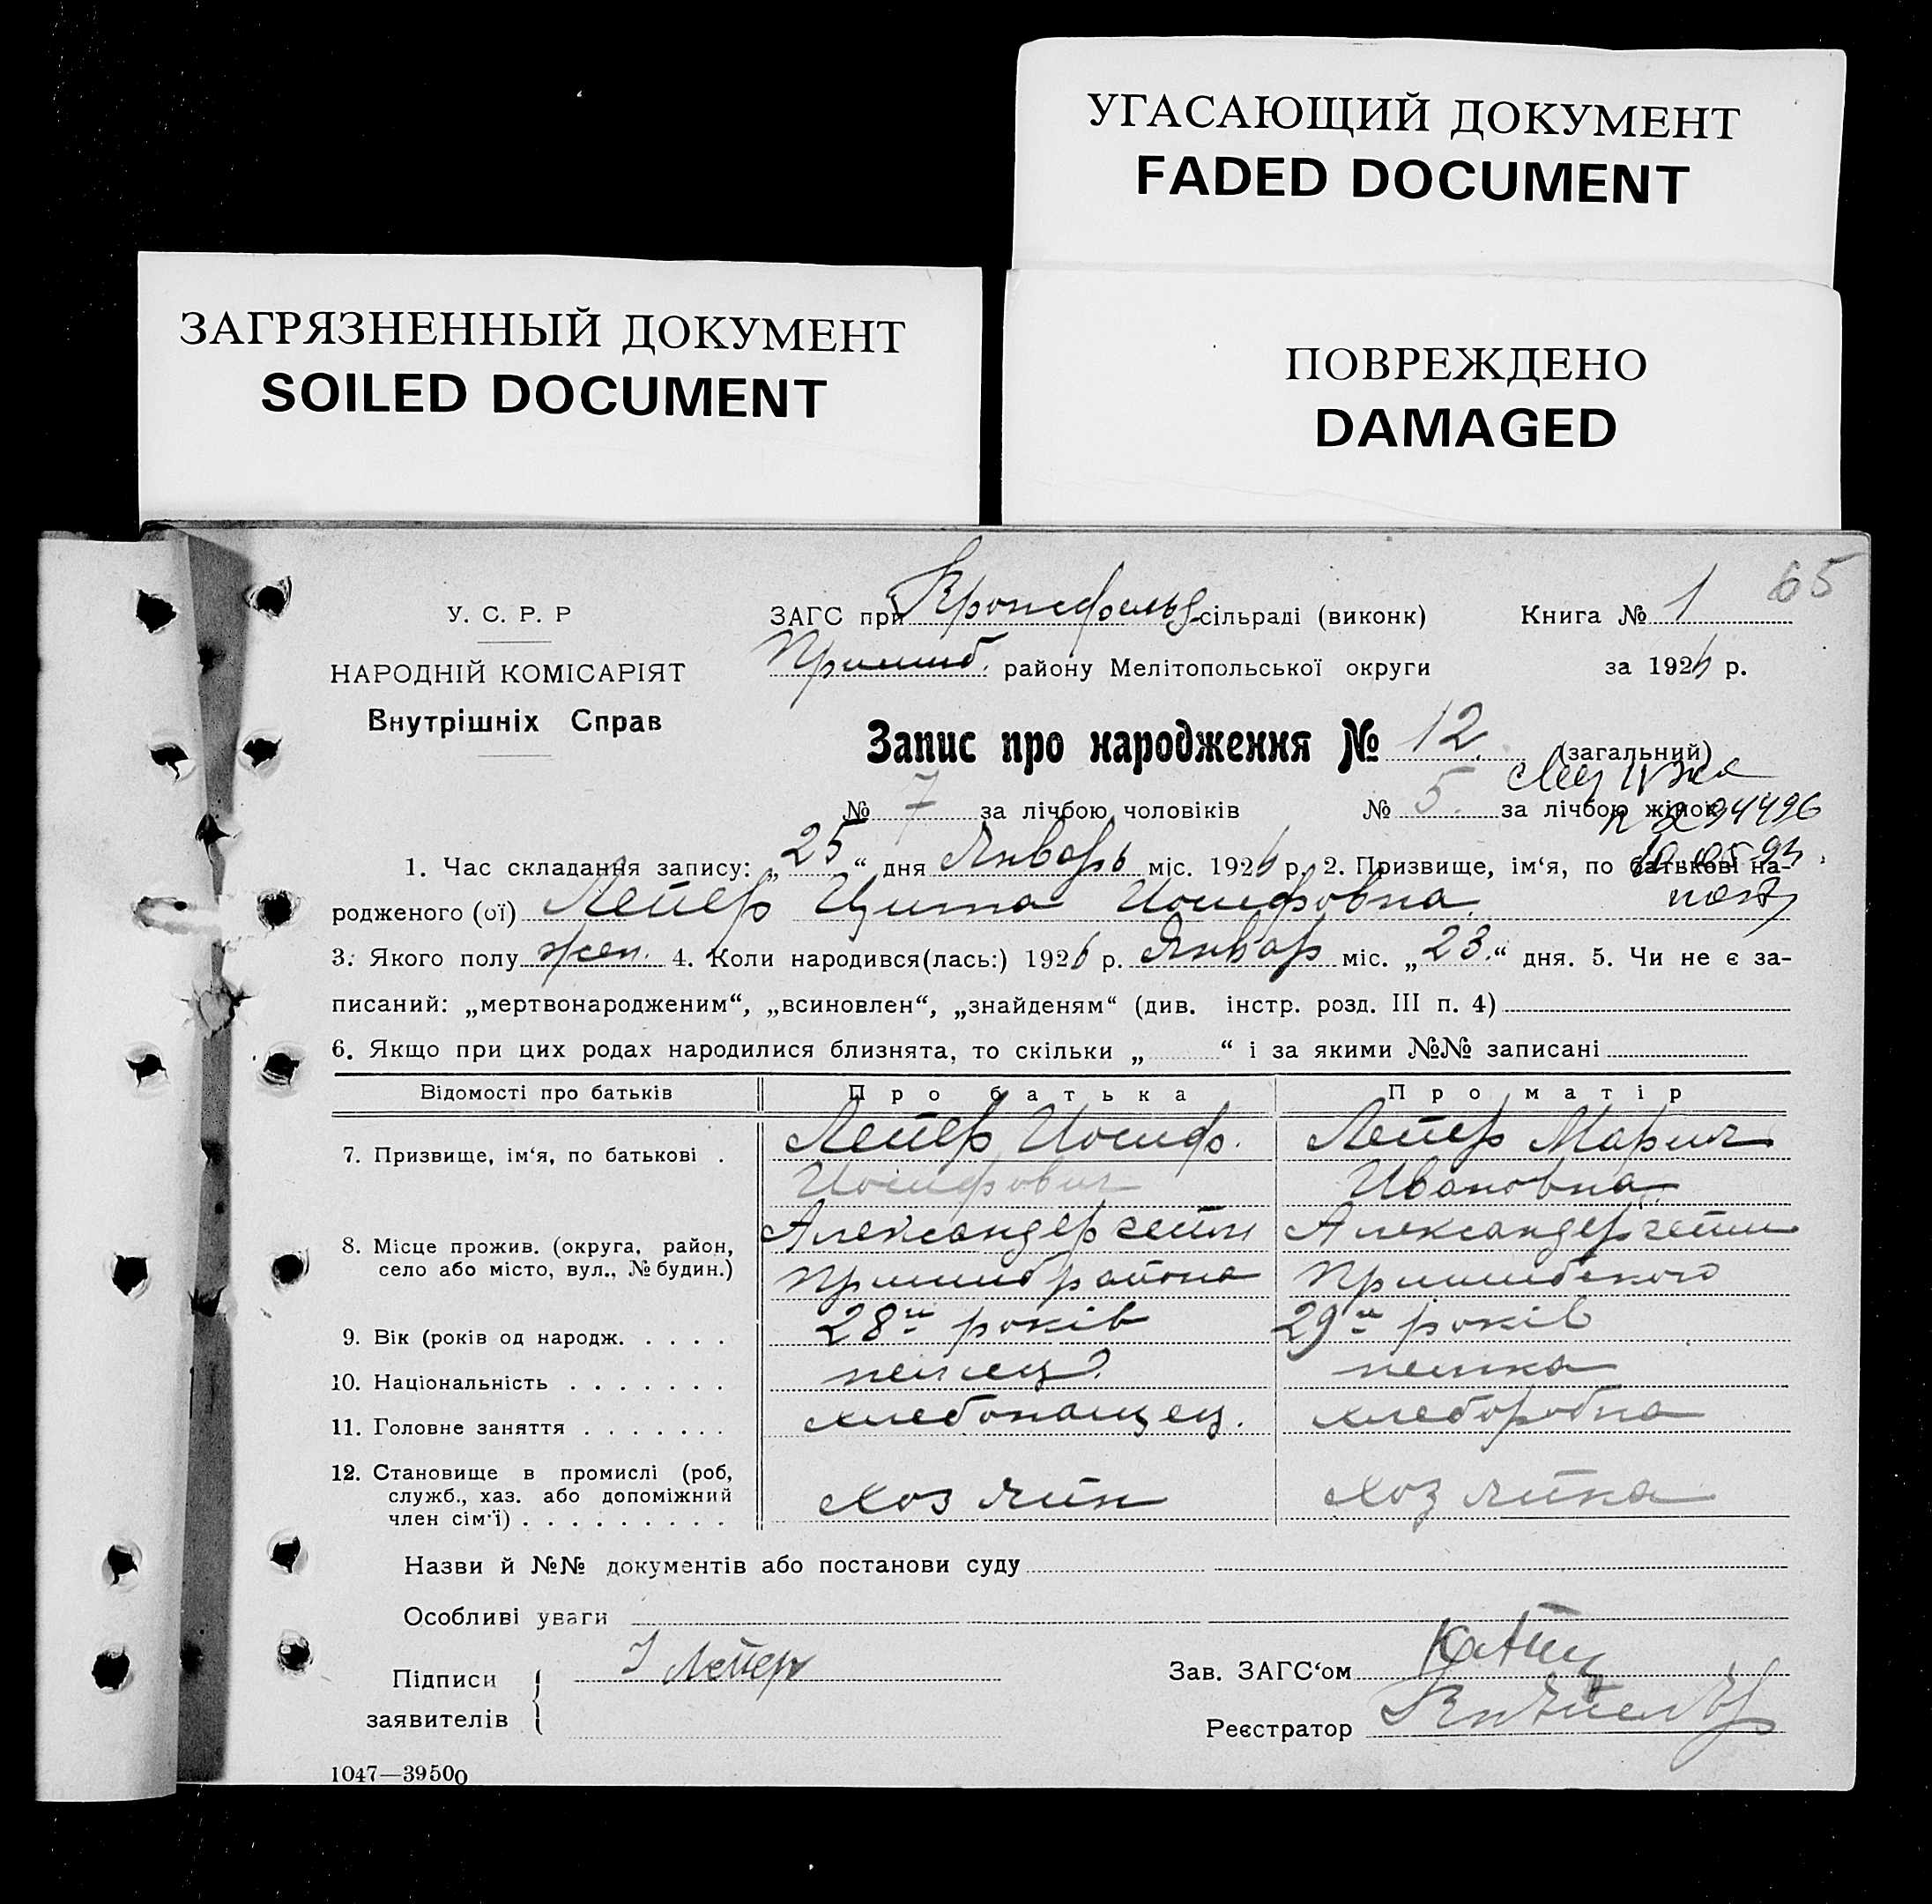 УГАСАЮЩИЙ ДОКУМЕНТ
FADED DOCUMENT
ЗАГРЯЗНЕННЫЙ ДОКУМЕНТ
SOILED DOCUMENT
ПОВРЕЖДЕНО
DAMAGED
65
У. С. Р. Р
НАРОДНІЙ КОМІСАРІЯТ
Внутрішніх Справ
ЗАГС при Кронсфельд сільраді (виконк) Книга № 1
Пришиб. району Мелітопольської округи за 1926 р.
Запис про народження № 12. (загальний)
№ 7 за лічбою чоловіків № 5. за лічбою жінок
1. Час складання запису: „25“ дня Январь міс. 1926 р. 2. Призвище, ім‘я, по батькові на-
родженого (ої) Лейер Цита Иосифовна
3. Якого полу жен. 4. Коли народився(лась:) 1926 р. Январ міс. „23.“ дня. 5. Чи не є за-
писаний: „мертвонародженим“, „всиновлен“, „знайденям“ (див. інстр. розд. III п. 4)
6. Якщо при цих родах народилися близнята, то скільки „ “ і за якими №№ записані
Відомості про батьків Про батька Про матір
7. Призвище, ім‘я, по батькові . Лейер Иосиф. Лейер Мария
Иосифович Ивановна
8. Місце прожив. (округа, район, Александергейм Александергейм
село або місто, вул., № будин.) Пришиб района Пришибского
9. Вік (років од народж. . . . . 28 років 29 років
10. Національність . . . . . . . немец немка
11. Головне заняття . . . . . . . хлебопашец. хлеборобка
12. Становище в промислі (роб,
служб., хаз. або допоміжний
член сім‘ї) . . . . . . . . . Хозяйн хозяйка
Назви й №№ документів або постанови суду
Особливі уваги
Підписи
заявителів
І Лейер
Зав. ЗАГС‘ом
Реєстратор
1047—39500